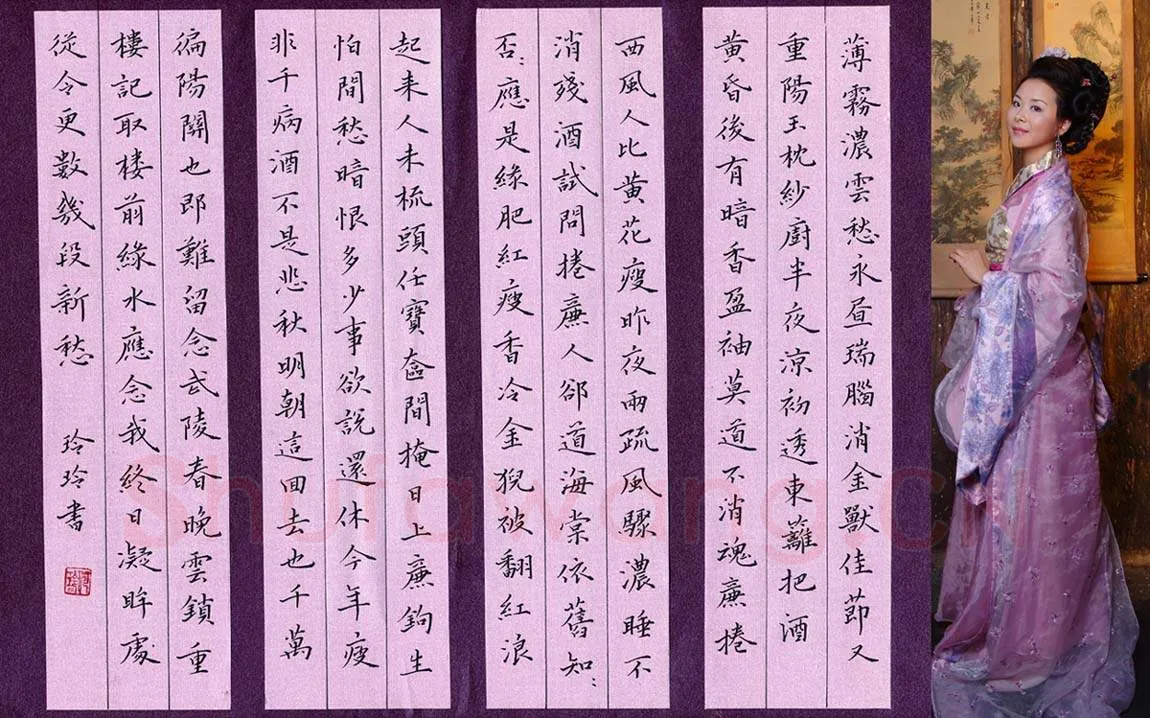 薄霧濃雲愁永昼瑞腦消金獸佳莭又
重陽玉枕紗廚半夜涼初透東籬把酒
黄昏後有暗香盈袖莫道不消魂亷捲
西風人比黄花瘦昨夜雨疏風驟濃睡不
消殘酒試問捲亷人郤道海棠依舊知：
否：應是緑肥紅瘦香冷金猊被翻紅浪
起来人未梳頭任寶奩間掩日上亷鉤生
怕間愁暗恨多少事欲説還休今年瘦
非干病酒不是悲秋明朝這回去也千萬
徧陽關也即難留念武陵春晚雲鎖重
樓記取楼前緑水應念我終日凝眸處
從今更數幾段新愁 玲玲書
Shufawang.C